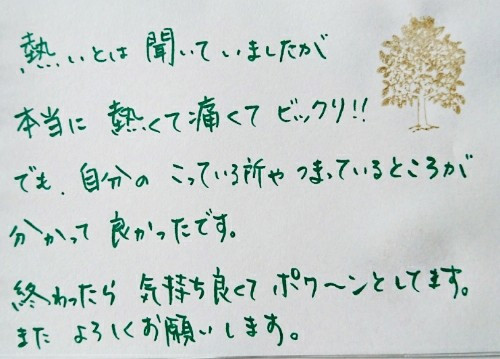 熱いとは聞いていましたが
本当に熱くて痛くてビックリ!!
でも、自分のこっている所やつまっているところが
分かって良かったです。
終わったら気持ち良くてポワ〜ンとしてます。
またよろしくお願いします。